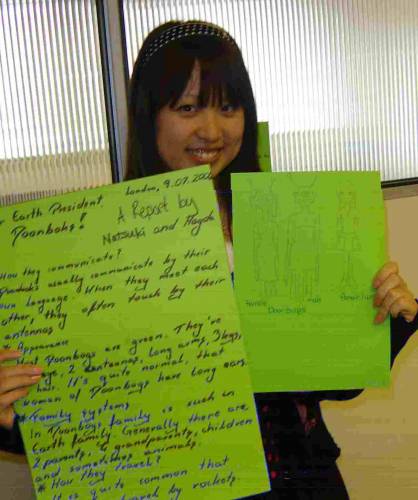 London, 9.07.200
Earth President,
A Report by
Natsuki and Magda
How they communicate?
usually communicate by their
own language. When they meet each
other, they often touch by their
antennas
* Appearance
are green. They're
2 antennas, long arms, 3 legs,
hair. It's quite normal, that
women of have long ears.
* Family systems
In family is such in
Earth family. Generally there are
2 parents, grandparents, children
and sometimes animals.
* How they travel?
It is quite common that
travel by rockets.
female
man